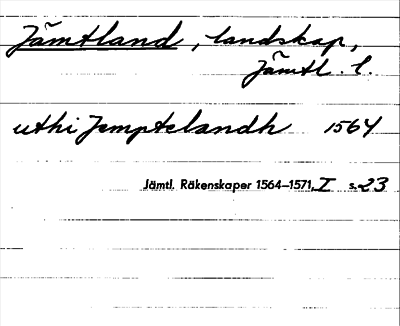 Jämtland, landskap,
Jämtl. l.
uthi Jemptelandh 1564
Jämtl. Räkenskaper 1564–1571, I s. 23